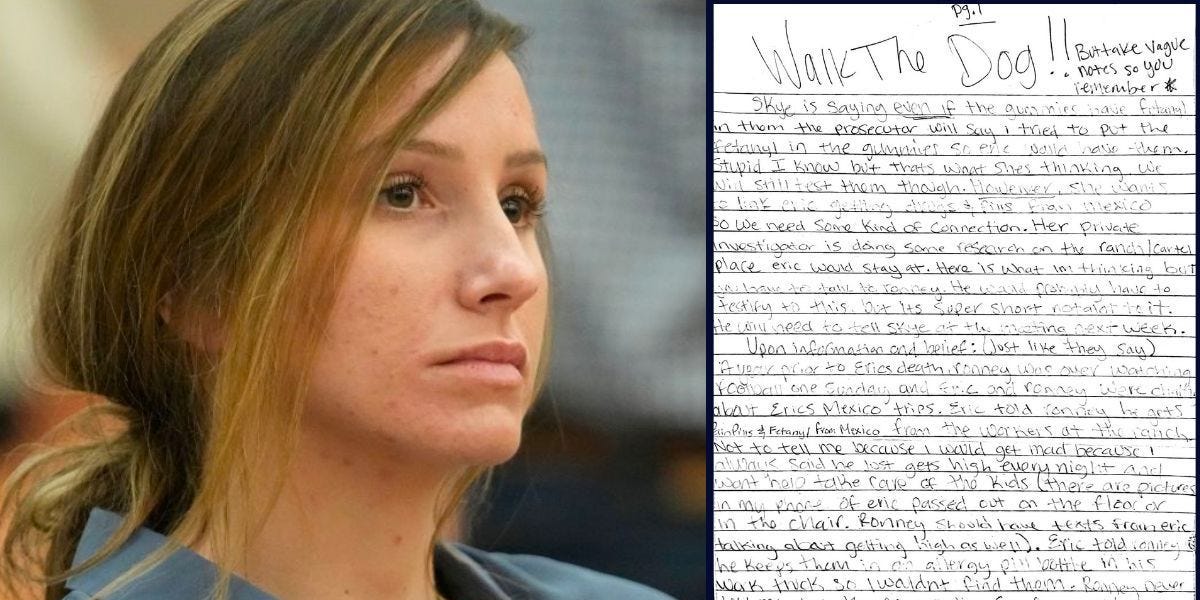 pg.1
Walk The Dog!!
But take vague
notes so you
remember *
Skye is saying even if the gummies have fetanyl
in them the prosecutor will say i tried to put the
fetanyl in the gummies so eric would have them.
Stupid I know but thats what shes thinking we
will still test them though. However, she wants
to link eric getting drugs & pills from mexico
so we need some kind of connection. Her private
investigator is doing some research on the ranch/cartel
place eric would stay at. Here is what im thinking but
have to talk to ronney. He would probably have to
testify to this, but its super short not a lot to it.
He will need to tell Skye at the meeting next week.
Upon information and belief: (Just like they say)
A year prior to Erics death, ronney was over watching
football one Sunday and Eric and ronney were
about Erics Mexico trips. Eric told ronney he gets
Pain Pills & Fetanyl from Mexico from the workers at the ranch
Not to tell me because i would get mad because I
always said he just gets high every night and
wont help take care of the kids (there are pictures
in my phone of eric passed out on the floor or
in the chair. Ronney should have texts from eric
talking about getting high as well). Eric told ronney
he keeps them in an allergy pill bottle in his
work truck so I wouldnt find them. Ronney never